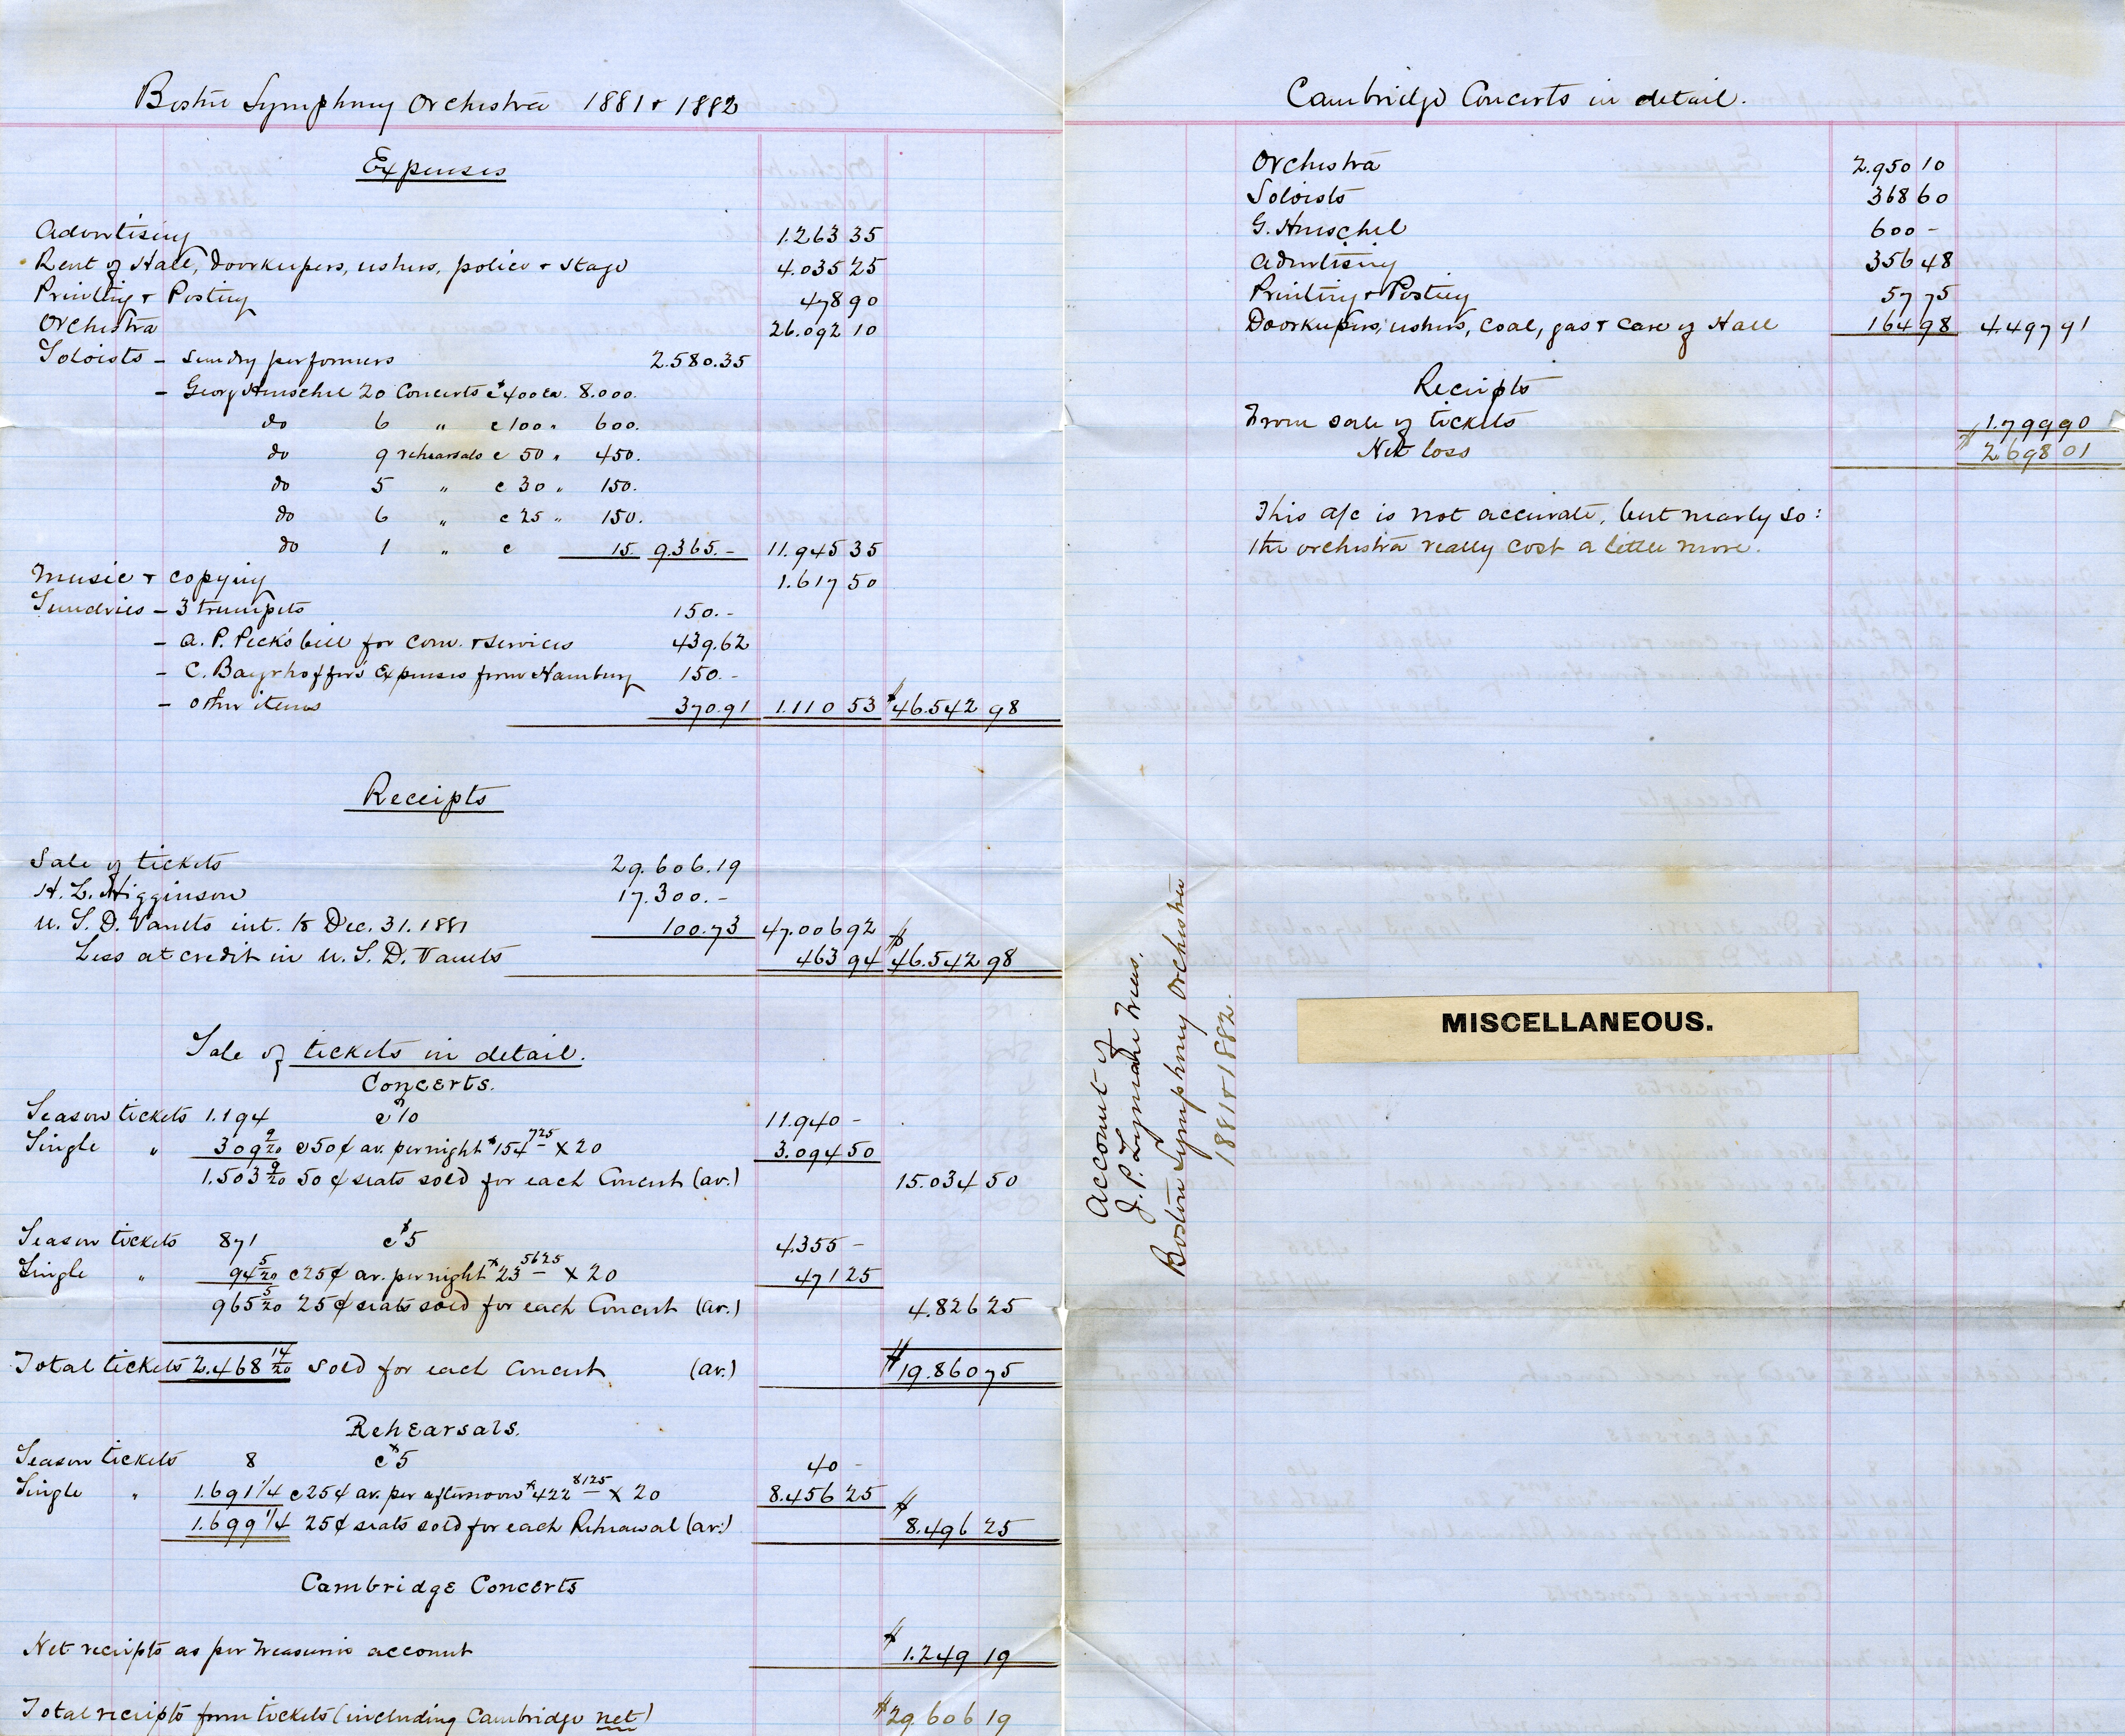 Boston Symphony Orchestra 1881 + 1882
Expenses
Advertising 1.263 35
Rent of Hall, Doorkeepers, ushers, police + stage 4.035 25
Printing + Posting 478 90
Orchestra 26.092 10
Soloists - Sundry performers 2.580.35
- Georg Henschel 20 Concerts @ $400 ea. 8.000.
do 6 " @ 100 " 600.
do 9 rehearsals @ 50 " 450.
do 5 " @ 30 " 150.
do 6 " @ 25 " 150.
do 1 " @ 15. 9.365.- 11.945 35
Music + copying 1.617 50
Sundries - 3 trumpets 150.-
- A. P. Peck's bill for com. + services 439.62
- C. Bayrhoffer's Expenses from Hamburg 150.-
- other items 370.91 1.110 53 $46.542 98
Receipts
Sale of tickets 29.606.19
H. L. Higginson 17.300.-
U. S. D. Vaults int. to Dec. 31. 1881 100.73 47.006 92
Less at credit in U. S. D. Vaults 463 94 $46.542 98
Sale of tickets in detail.
Concerts.
Season tickets 1.194 @ $10 11.940 -
Single " 309 9/20 @ 50¢ av. per night $154 725 x 20 3.094 50
1.503 9/20 50¢ seats sold for each Concert (av.) 15.034 50
Season tickets 871 @ $5 4.355 -
Single " 94 5/20 @ 25¢ av. per night $23 5625 x 20 471 25
965 5/20 25¢ seats sold for each Concert (av.) 4.826 25
Total tickets 2.468 14/20 sold for each Concert (av.) $19.860 75
Rehearsals.
Season tickets 8 @ $5 40 -
Single " 1.691 1/4 @ 25¢ av. per afternoon $422 8125 x 20 8.456 25
1.699 1/4 25¢ seats sold for each Rehearsal (av.) $8.496 25
Cambridge Concerts
Net receipts as per Treasurer's account $1.249 19
Total receipts from tickets (including Cambridge net) $29.606 19
Cambridge Concerts in detail.
Orchestra 2.950 10
Soloists 368 60
G. Henschel 600 -
Advertising 356 48
Printing + Posting 57 75
Doorkeepers, ushers, coal, gas + care of Hall 164 98 4.497 91
Receipts
From sale of tickets 1.799 90
Net loss $2.698 01
This a/c is not accurate, but nearly so:
the orchestra really cost a little more.
Account of
J. P. Lyman Treas.
Boston Symphony Orchestra
1881 + 1882.
MISCELLANEOUS.